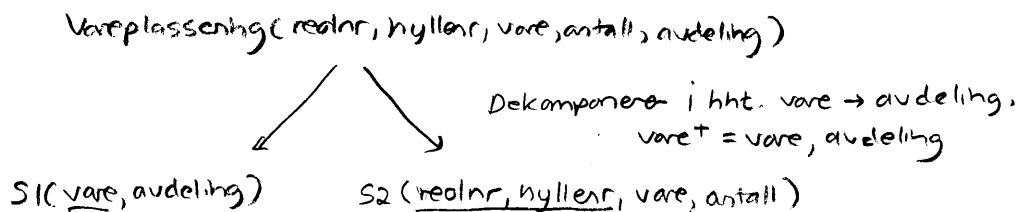 Vareplassering(reolnr, hyllenr, vare, antall, avdeling)
Dekomponere i hht. vare → avdeling.
vare+ = vare, avdeling
S1(vare, avdeling) S2(reolnr, hyllenr, vare, antall)